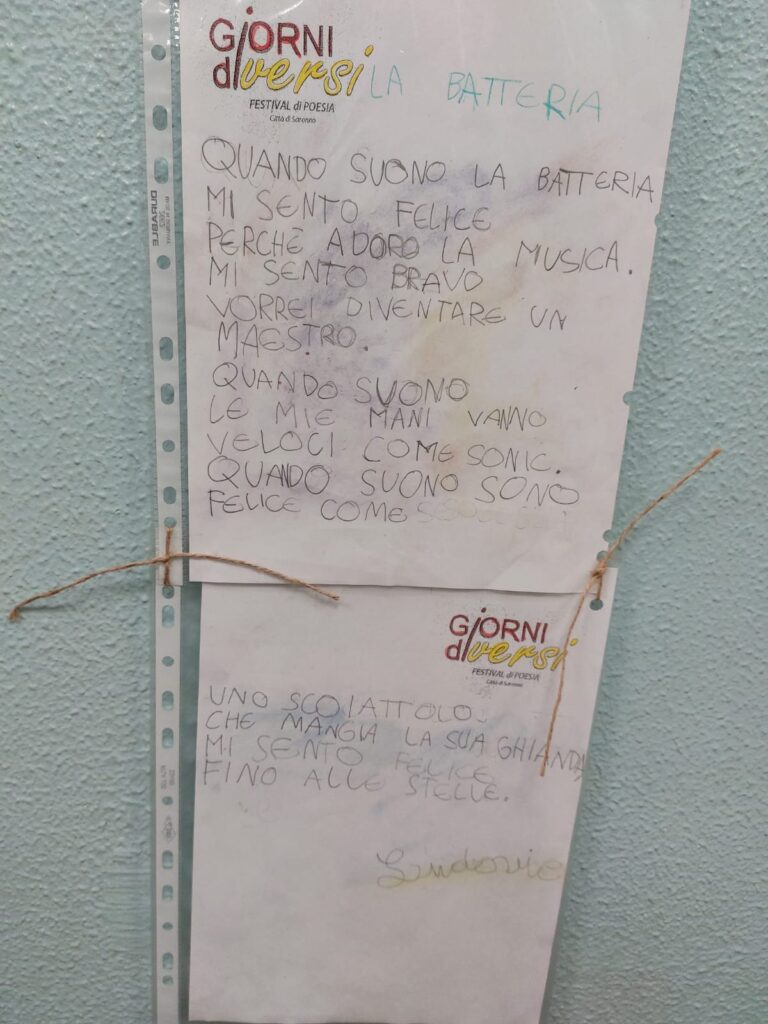 GiORNI
diversi
FESTIVAL di POESIA
Città di Saronno
LA BATTERIA
QUANDO SUONO LA BATTERIA
MI SENTO FELICE
PERCHÈ ADORO LA MUSICA.
MI SENTO BRAVO
VORREI DIVENTARE UN
MAESTRO.
QUANDO SUONO
LE MIE MANI VANNO
VELOCI COME SONIC.
QUANDO SUONO SONO
FELICE COME
DURABLE
GiORNI
diversi
FESTIVAL di POESIA
Città di Saronno
UNO SCOIATTOLO
CHE MANGIA LA SUA GHIANDA,
MI SENTO FELICE
FINO ALLE STELLE.